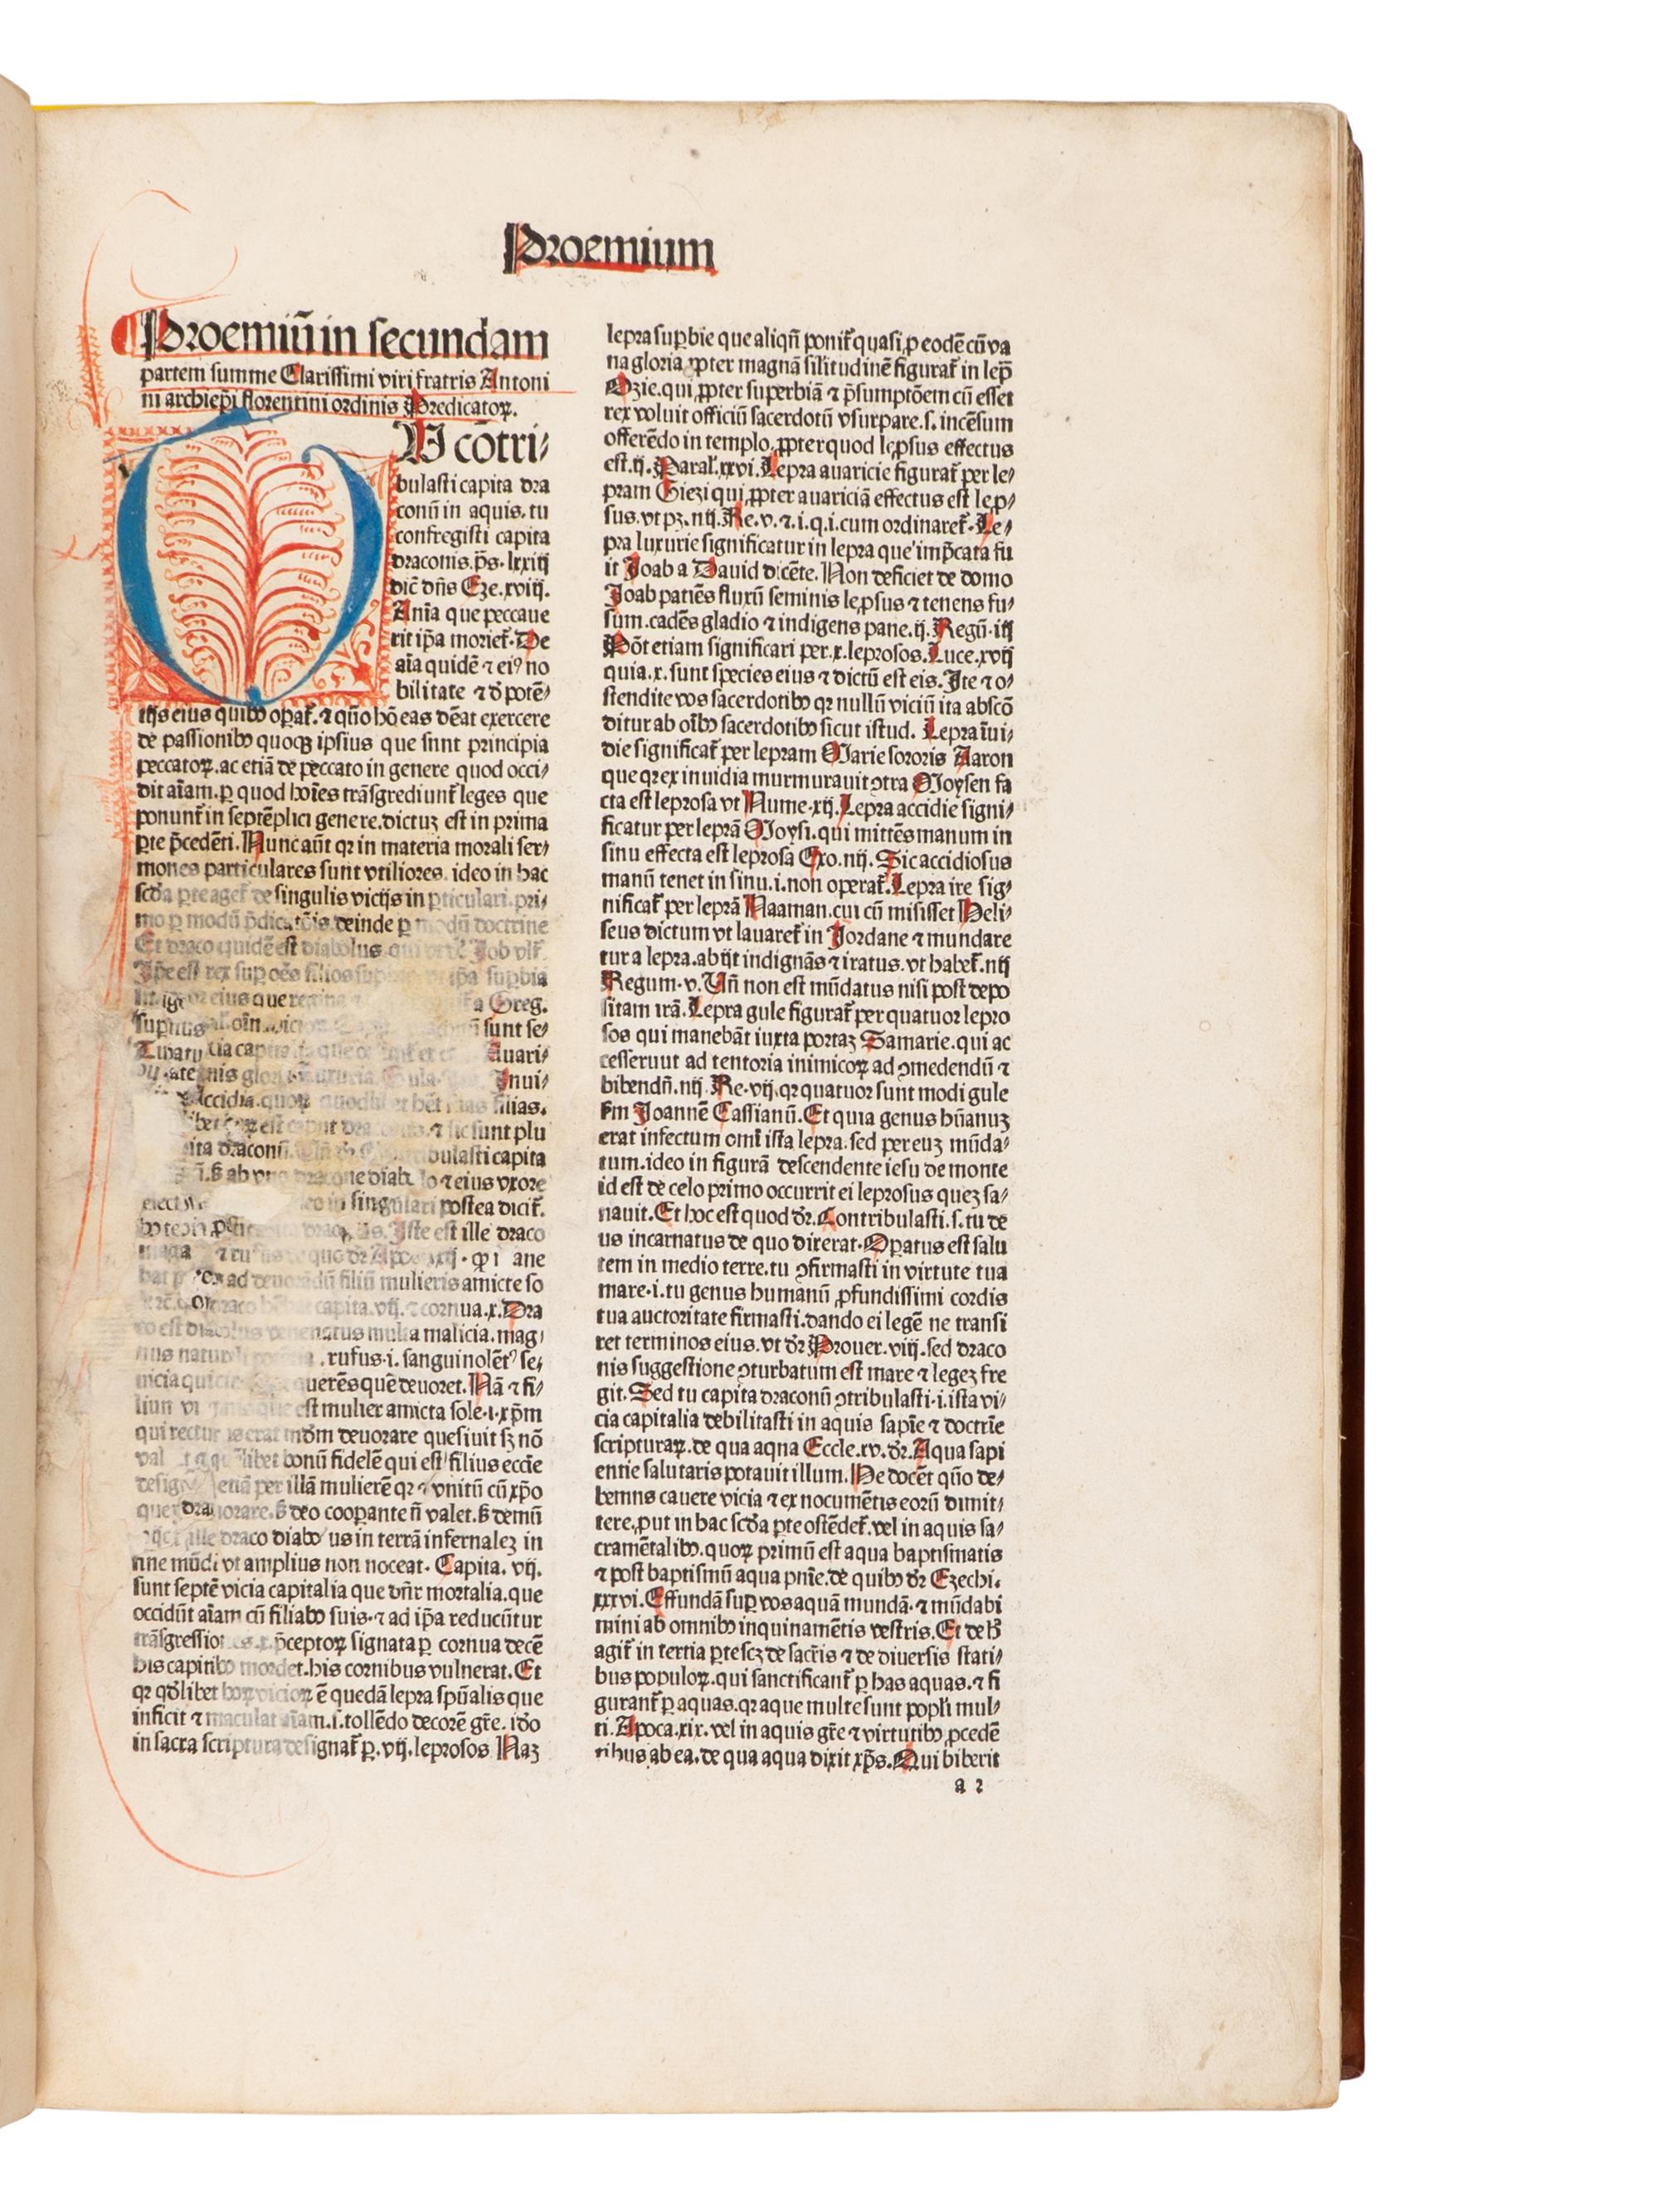 Proemium
Proemiū in secundam
partem summe Clarissimi viri fratris Antoni
ni archiep̄i florentini ordinis Predicatoꝝ.
U cōtri⸗
bulasti capita dra
conū in aquis. tu
confregisti capita
draconis. p̄s. lxxiij
dic̄ dn̄s Eze. xviij.
Anīa que peccaue
rit ip̄a moriet̄. De
aīa quidē ⁊ eiꝰ no
bilitate ⁊ d̄ potē⸗
tijs eius quibꝰ oꝑat̄. ⁊ qūo hō eas dēat exercere
de passionibꝰ quoqꝫ ipsius que sunt principia
peccatoꝝ. ac etiā de peccato in genere quod occi⸗
dit aīam. ꝑ quod hoīes trāsgrediunt̄ leges que
ponunt̄ in septēplici genere. dictuꝫ est in prima
ꝑte p̄cedēti. Nunc aūt qꝛ in materia morali ser⸗
mones particulares sunt vtiliores. ideo in hac
scd̄a ꝑte aget̄ de singulis vicijs in ꝑticulari. pri⸗
mo ꝑ modū p̄dicatōis. deinde ꝑ modū doctrine
Et draco quidē est diabolus. Job vlt̄.
Ip̄e est rex suꝑ oēs filios ip̄a suꝑbia
eius que regina Greg.
sunt se⸗
Auari⸗
Gula. Inui⸗
Accidia. quoꝝ quodlibet hēt suas filias.
est caput ⁊ sic sunt plu
draconū. bulasti capita
ab vno dracone diabolo ⁊ eius vxore
in singulari postea dicit̄.
Iste est ille draco
de quo dr̄ Apoc. xij.
ad deuorādū filiū mulieris amicte so
draco capita. vij. ⁊ cornua. x. Dra
co est diabolus venenatus multa malicia. mag⸗
nus rufus. i. sanguinolētꝰ se⸗
uicia querēs quē deuoret. Nā ⁊ fi⸗
lium est mulier amicta sole. i. xp̄m
qui erat mūdm deuorare quesiuit sꝫ nō
bonū fidelē qui est filius eccīe
etiā per illā mulierē qꝛ ⁊ vnitū cū xp̄o
deo cooꝑante n̄ valet. ß demū
ille draco diabolus in terrā infernaleꝫ in
fine mūdi vt amplius non noceat. Capita. vij.
sunt septē vicia capitalia que dn̄r mortalia. que
occidūt aīam cū filiabꝰ suis. ⁊ ad ip̄a reducūtur
trāsgressiones. x. p̄ceptoꝝ signata ꝑ cornua decē
his capitibꝰ mordet. his cornibus vulnerat. Et
qꝛ qd̄libet hoꝝ vicioꝝ ē quedā lepra spūalis que
inficit ⁊ maculat aīam. i. tollēdo decorē gr̄e. id̄o
in sacra scriptura designat̄ ꝑ. vij. leprosos Naꝫ
lepra suꝑbie que aliqn̄ ponit̄ quasi ꝓ eodē cū va
na gloria ꝓpter magnā silitudinē figurat̄ in lep̄
Ozie. qui ꝓpter superbiā ⁊ p̄sumptōem cū esset
rex voluit officiū sacerdotū vsurpare. s. incēsum
offerēdo in templo. ꝓpter quod lep̄sus effectus
est. ij. Paral̄. xxvi. Lepra auaricie figurat̄ per le⸗
pram Giezi qui ꝓpter auariciā effectus est lep̄⸗
sus. vt pꝫ. iiij. Re. v. ⁊. i. q. i. cum ordinaret̄. Le⸗
pra luxurie significatur in lepra que imp̄cata fu
it Joab a Dauid dicēte. Non deficiet de domo
Joab patiēs fluxū seminis lep̄sus ⁊ tenens fu⸗
sum. cadēs gladio ⁊ indigens pane. ij. Regū. iij
Pōt etiam significari per. x. leprosos. Luce. xvij
quia. x. sunt species eius ⁊ dictū est eis. Ite ⁊ o⸗
stendite vos sacerdotibꝰ qꝛ nullū viciū ita abscō
ditur ab oībꝰ sacerdotibꝰ sicut istud. Lepra īui⸗
die significat̄ per lepram Marie sororis Aaron
que qꝛ ex inuidia murmurauit ꝯtra Moysen fa
cta est leprosa vt Nume. xij. Lepra accidie signi⸗
ficatur per leprā Moysi. qui mittēs manum in
sinu effecta est leprosa Exo. iiij. Sic accidiosus
manū tenet in sinu. i. non operat̄. Lepra ire sig⸗
nificat̄ per leprā Naaman. cui cū misisset Heli⸗
seus dictum vt lauaret̄ in Jordane ⁊ mundare
tur a lepra. abijt indignās ⁊ iratus. vt habet̄. iiij
Regum. v. Un̄ non est mūdatus nisi post depo
sitam irā. Lepra gule figurat̄ per quatuor lepro
sos qui manebāt iuxta portaꝫ Samarie. qui ac
cesseruut ad tentoria inimicoꝝ ad ꝯmedendū ⁊
bibendū. iiij. Re. vij. qꝛ quatuor sunt modi gule
fm Joannē Cassianū. Et quia genus hūanuꝫ
erat infectum omī ista lepra. sed per euꝫ mūda⸗
tum. ideo in figurā descendente iesu de monte
id est de celo primo occurrit ei leprosus queꝫ sa⸗
nauit. Et hoc est quod dr̄. Contribulasti. s. tu de
us incarnatus de quo dixerat. Oꝑatus est salu
tem in medio terre. tu ꝯfirmasti in virtute tua
mare. i. tu genus humanū ꝓfundissimi cordis
tua auctoritate firmasti. dando ei legē ne transi
ret terminos eius. vt dr̄ Prouer. viij. sed draco
nis suggestione ꝯturbatum est mare ⁊ legeꝫ fre
git. Sed tu capita draconū ꝯtribulasti. i. ista vi⸗
cia capitalia debilitasti in aquis sapīe ⁊ doctrīe
scripturaꝝ. de qua aqna Eccle. xv. dr̄. Aqua sapi
entie salutaris potauit illum. He docēt qūo de⸗
bemns cauere vicia ⁊ ex nocumētis eorū dimit⸗
tere. ꝓut in hac scd̄a ꝑte ostēdet̄. vel in aquis sa⸗
cramētalibꝰ. quoꝝ primū est aqua baptismatis
⁊ post baptismū aqua pnīe. de quibꝰ dr̄ Ezechi.
xxxvi. Effundā suꝑ vos aquā mundā. ⁊ mūdabi
mini ab omnibꝰ inquinamētis vestris. Et de hꝰ
agit̄ in tertia ꝑte scꝫ de sacr̄is ⁊ de diuersis stati⸗
bus populoꝝ. qui sanctificant̄ ꝑ has aquas. ⁊ fi
gurant̄ ꝑ aquas. qꝛ aque multe sunt popl̄i mul⸗
ti. Apoca. xix. vel in aquis gr̄e ⁊ virtutibꝰ ꝓcedē
tibus ab ea. de qua aqua dixit xp̄s. Qui biberit
a 2